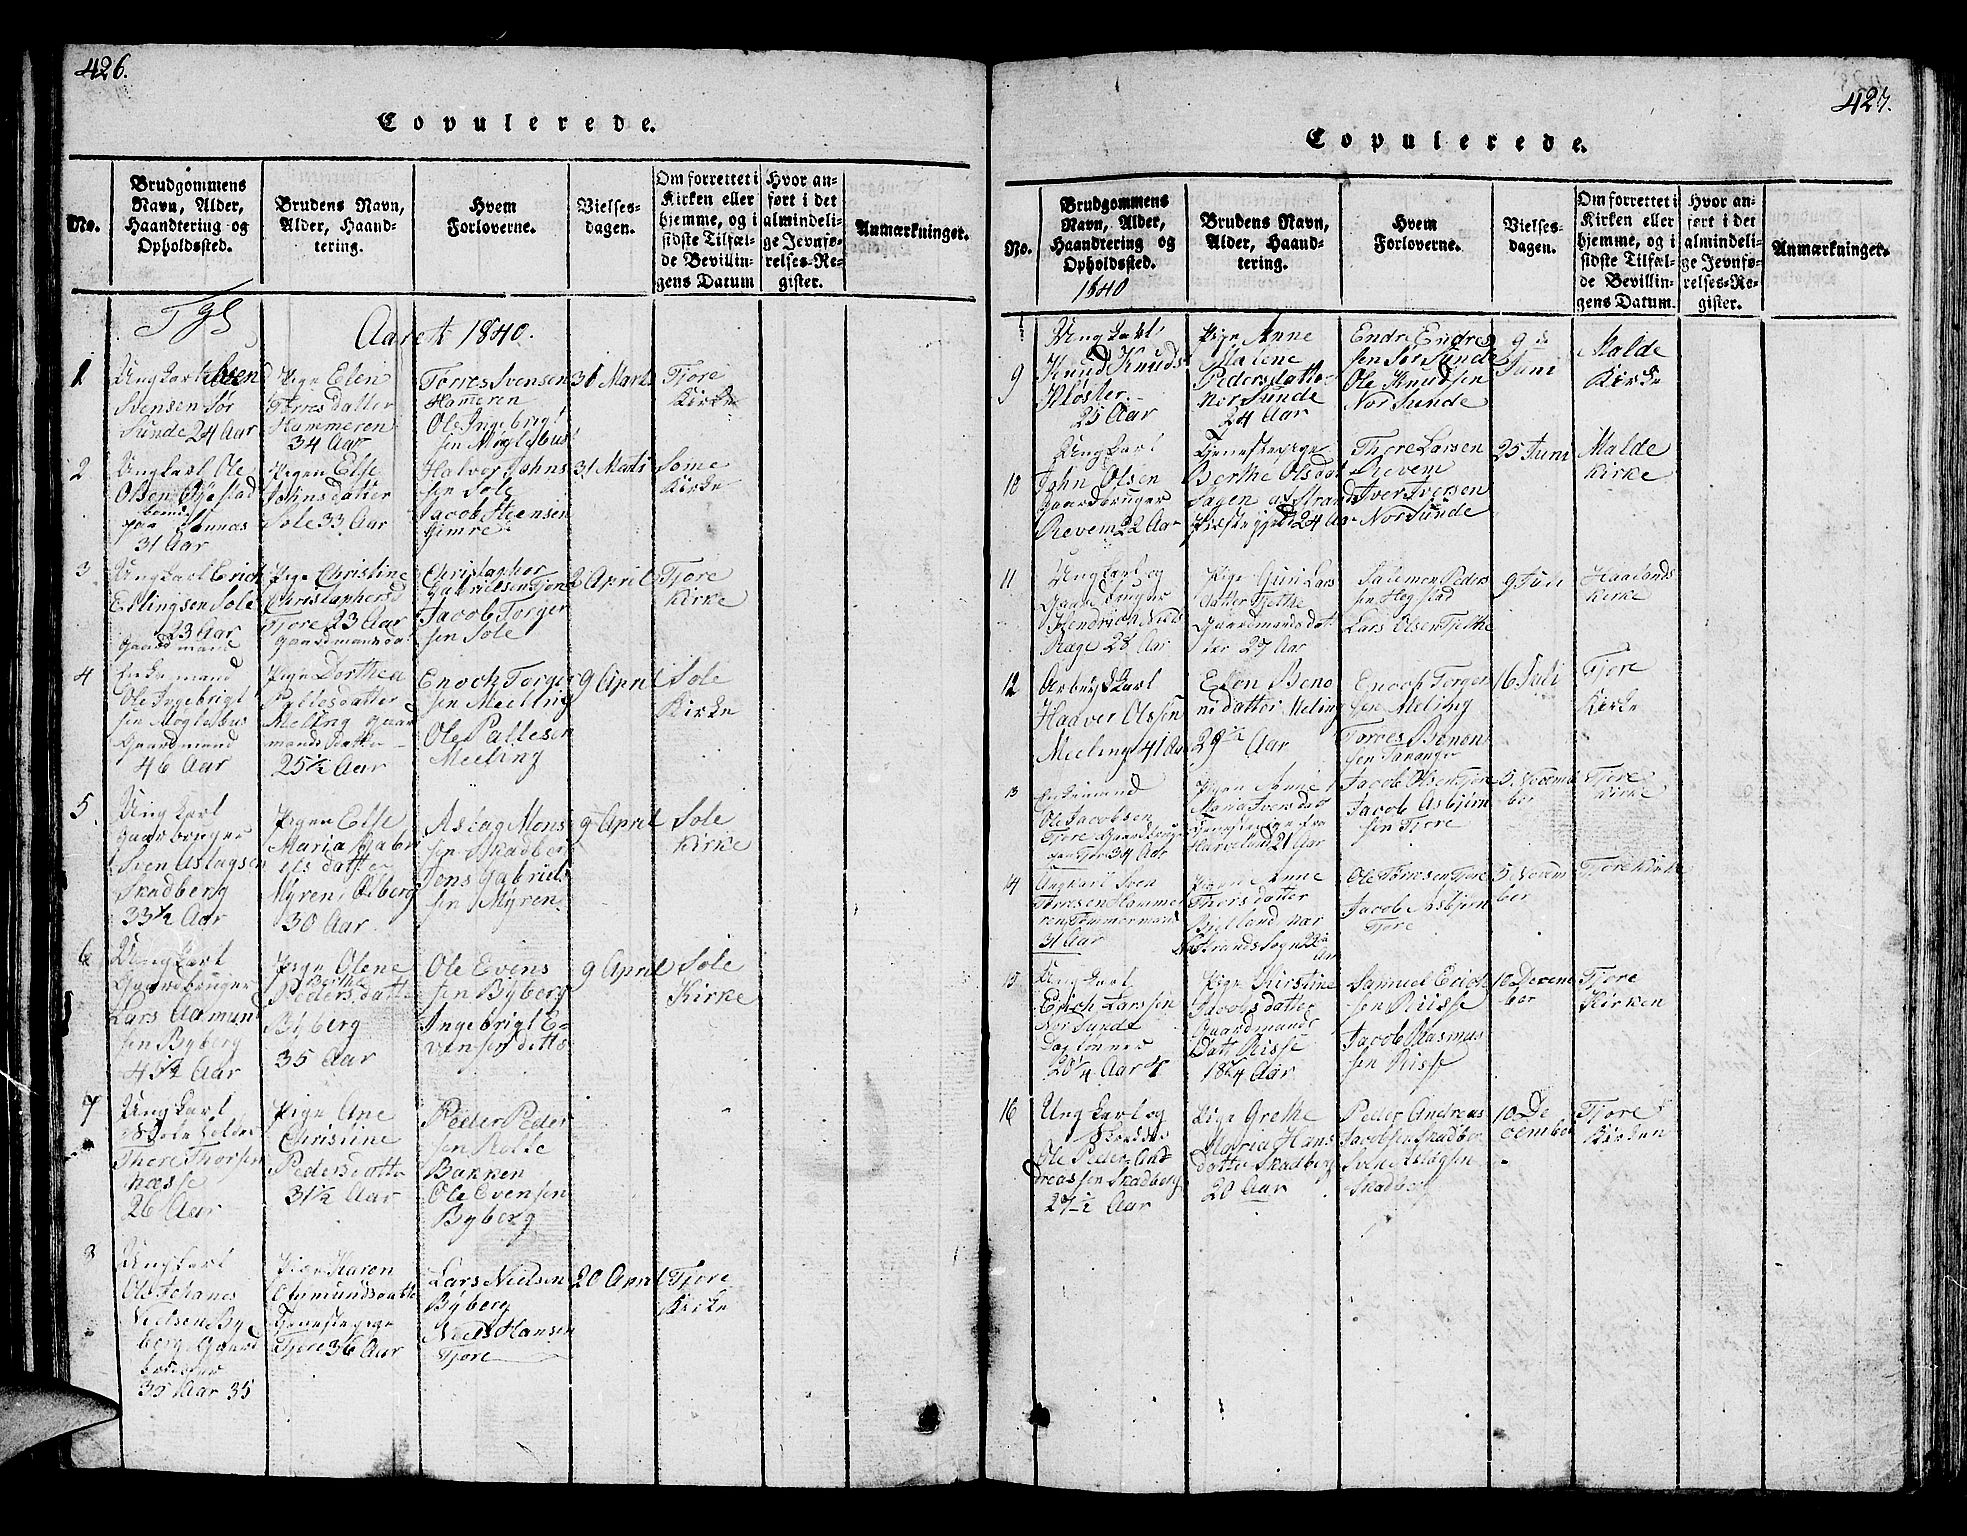 426.
Copulerede.
No.
Brudgommens
Navn, Alder,
Haandtering og
Opholdssted.
Brudens Navn,
Alder, Haand-
tering.
Hvem
Forloverne.
Vielses-
dagen.
Om forrettet i
Kirken eller
hjemme, og i
sidste Tilfæl-
de Bevillin-
gens Datum
Hvor an-
ført i det
almindeli-
ge Jevnfø-
relses-Re-
gister.
Anmærkninger.
Aaret 1840.
1
Ungkarl
Svensen Sør
Sunde 24 Aar
Pige Elen
Torresdatter
Hammeren
34 Aar
Torres Svensen
Hammeren
Ole Ingebrigt
sen Møglebus
31 Marts
Tjore
Kirke
2
Ungkarl Ole
Olsen
paa
31 Aar
Pigen Else
Johnsdatter
Sole 33 Aar
Halvor Johns
sen Sole
Jacob Steensen
Gimre
31 Marts
Some
Kirke
3
Ungkarl Erich
Erlingsen Sole
23 Aar
Gaardmand
Pige Christine
Christophersd
Tjore 23 Aar
Gaardmandsdat
Christopher
Gabrielsen Tjore
Jacob Torger
sen Sole
2 April
Tjore
Kirke
4
Enkemand
Ole Ingebrigt
sen Møglebus
Gaardmand
46 Aar
Pige Dorthea
Pallesdatter
Meling Gaar
mands Datter
25½ Aar
Enoch Torger
sen Meeling
Ole Pallesen
Meeling
9 April
Sole
Kirke
5
Ungkarl
Gaarbruger
Sven Aslagsen
Skadberg
33½ Aar
Pigen Else
Maria Gabri
els datter
Myren, Ølberg
30 Aar
Aslag Mons
sen Skadberg
Jens Gabriel
sen Myren
9 April
Sole
Kirke
6
Ungkarl
Gaardbruger
Lars Aamund
sen Byberg
Pige Olene
Berthe
Pedersdatte
Byberg
35 Aar
Ole Evens
sen Byberg
Ingebrigt E-
vensen ditto
9 April
Sole
Kirke
7
Ungkarl
Thore Thorsen
næsse
26 Aar
Pige Ane
Christine
Pedersdatte
31½ Aar
Peder Peder
sen Rolte
Bakken
Ole Evensen
Byberg
8
Ungkarl
Ole Johanes
Nielsen By
berg Gaard
35 Aar 35
Pige Karen
Omundsdatte
Tjenestepige
Tjore 36 Aar
Lars Nielsen
Byberg
Niels Hansen
Tjore
20 April
Tjore
Kirke
427.
Copulerede.
No.
Brudgommens
Navn, Alder,
Haandtering og
Opholdssted.
1840
Brudens Navn,
Alder, Haand-
tering.
Hvem
Forloverne.
Vielses-
dagen.
Om forrettet i
Kirken eller
hjemme, og i
sidste Tilfæl-
de Bevillin-
gens Datum.
Hvor an-
ført i det
almindeli-
ge Jevnfø-
relses-Re-
gister.
Anmærkninger.
9
Ungkarl
Knud Knuds
Kloster
25 Aar
Pige Anne
Malene
Pedersdatter
Nor Sunde
24 Aar
Endre Endre
sen Sør Sunde
Ole Knudsen
Nor Sunde
9de
Juni
Malde
Kirke
10
Ungkarl
John Olsen
Gaardbruger
Revem 22 Aar
Tjenestepige
Berthe Olsdat
Sagen af Strand
Præstegjeld 24 Aar
Thore Larsen
Revem
Iver Iversen
Nor Sunde
25 Juni
Malde
Kirke
11
Ungkarl og
Gaardbruger
Hendrich Niels
Ræge 28 Aar
Pige Guri Lars
datter Tjelthe
Gaardmandsdat
ter 27 Aar
Salemon Peders
sen Hogstad
Lars Olsen Tjelthe
9 Juli
Haalands
Kirke
12
Arbeydskarl
Haaver Olssen
Meeling 41 Aar
Elen Beno
nidatter Meling
29½ Aar
Enoch Torger
sen Meling
Torres Benon
sen Tananger
16 Juli
Tjore
Kirke
13
Enkemand
Ole Jacobsen
Tjore Gaardbruger
paa Tjore 34 Aar
Pigen Anne
Maria Iversdatt
Tjenestepige fra
Harveland 21 Aar
Jacob Olsen Tjore
Jacob Asbjørn
sen Tjore
5. Novem
ber
Tjore
Kirke
14
Ungkarl Sven
Thoresen Hamme
ren Tømmermand
31 Aar
Pigen Anne
Thorsdatter
Bjelland nær
Strands Sogn 22
Aar
Ole Toresen Tjore
Jacob Asbjørn
Tjore
5 Novem
ber
Tjore Kirke
15
Ungkarl
Erich Larssen
Nor Sunde
28¼ Aar
Pige Kirstine
Jacobsdatter
Gaardmands
Datt Risse
18¼ Aar
Samuel Erich
sen Riisse
Jacob Rasmus
sen Risse
10 Decem
ber
Tjore
Kirken
16
Ungkarl og
Ole Peder And
dreassen Skadberg
27½ Aar
Pige Grethe
Maria Hans
datter Skadberg
20 Aar
Peder Andreas
Jacobsen Skadber
Sven Aslagsen
Skadberg
10 De
cember
Tjore
Kirken